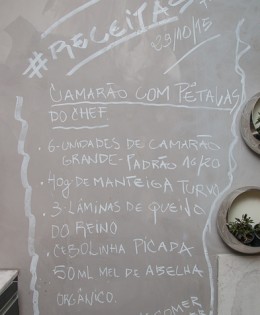 #RECEITAS
29/10/15
CAMARÃO COM PÉTALAS
DO CHEF
• 6-UNIDADES DE CAMARÃO
GRANDE-PADRÃO 16/20
• 40g DE MANTEIGA TURVO
• 3-LÂMINAS DE QUEIJO
DO REINO
• CEBOLINHA PICADA
50ML MEL DE ABELHA
ORGÂNICO.
COMER